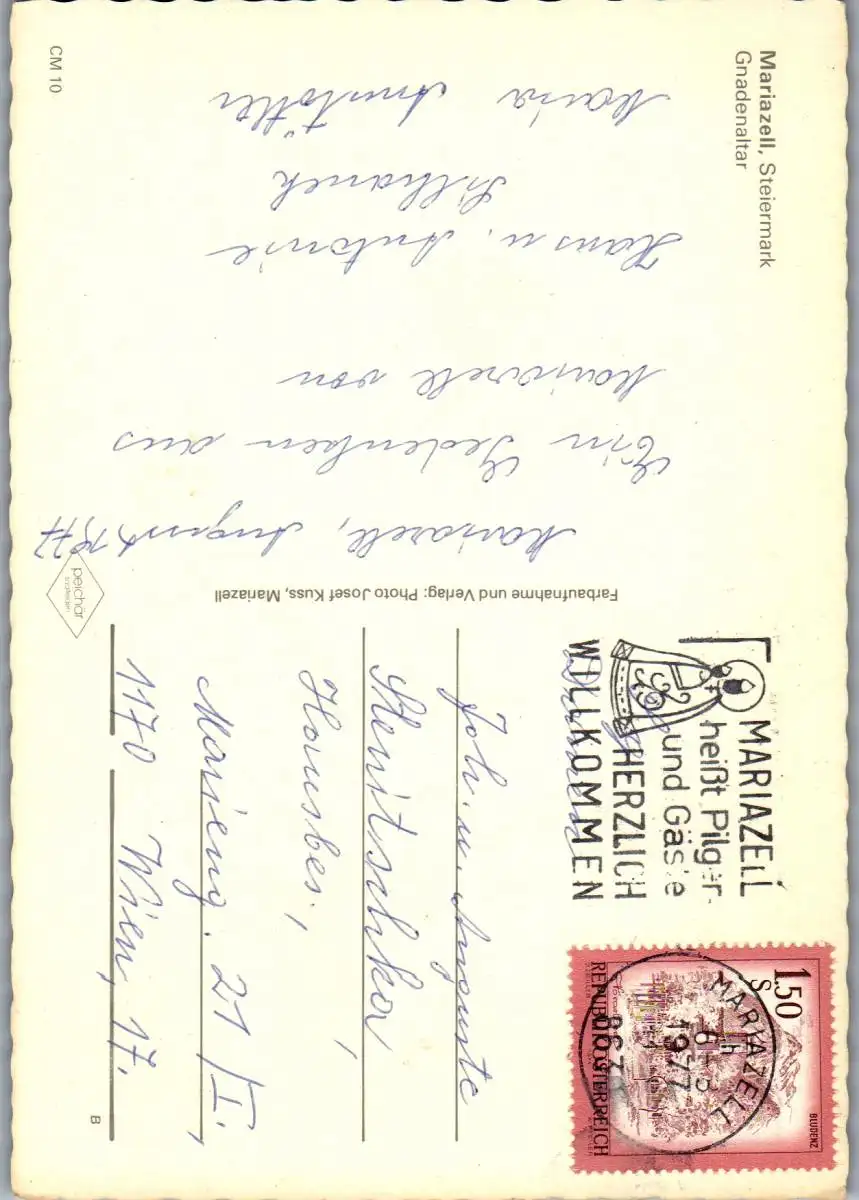 Mariazell, Steiermark
Gnadenaltar
CM 10
Mariazell, August 1977
Ein Gedenken aus
Mariazell von
Hans u. Antonie
Maria
Farbaufnahme und Verlag: Photo Josef Kuss, Mariazell
peichär
MARIAZELL
heißt Pilger-
und Gäste
HERZLICH
WILLKOMMEN
1.50
S
REPUBLIK ÖSTERREICH
BLUDENZ
MARIAZELL
1977
Joh. u. Auguste
Hausbes.,
Marieng. 21/I.,
1170 Wien, 17.
B